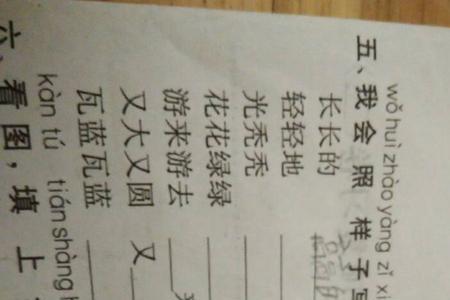 wǒ huì zhào yàng zǐ
五、我会照样子
长长的
轻轻地
光秃秃
花花绿绿
游来游去
又大又圆 又
瓦蓝瓦蓝
kàn tú tián shàng
六、看图，填上